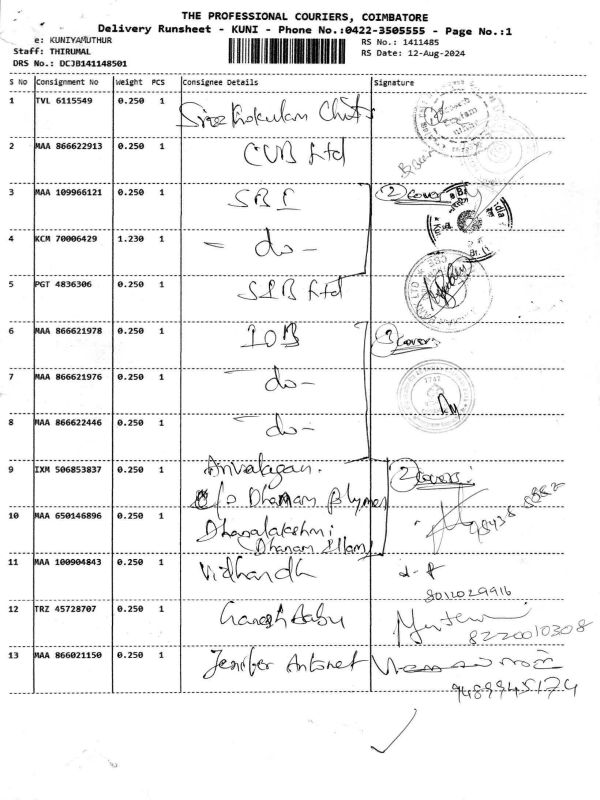 THE PROFESSIONAL COURIERS, COIMBATORE
Delivery Runsheet - KUNI - Phone No.:0422-3505555 - Page No.:1
e: KUNIYAMUTHUR
RS No.: 1411485
Staff: THIRUMAL
RS Date: 12-Aug-2024
DRS No.: DCJB141148501
S No Consignment No Weight PCS Consignee Details Signature
1 TVL 6115549 0.250 1 Sree Gokulam Chits
2 MAA 866622913 0.250 1 CUB Ltd
3 MAA 109966121 0.250 1 SBI 2 Cover
4 KCM 70006429 1.230 1 - do -
5 PGT 4836306 0.250 1 SIB Ltd
6 MAA 866621978 0.250 1 IOB 3 Covers
7 MAA 866621976 0.250 1 - do -
8 MAA 866622446 0.250 1 - do -
9 IXM 506853837 0.250 1 Arivalagan. 2 Covers:
c/o Dhanam Polymer
10 MAA 650146896 0.250 1 Dhanalakshmi
Dhanam Illam
11 MAA 100904843 0.250 1 Vidhandh
8012029916
12 TRZ 45728707 0.250 1 Ganesh Babu
8220010308
13 MAA 866021150 0.250 1 Jenifer Antonet
9489945174